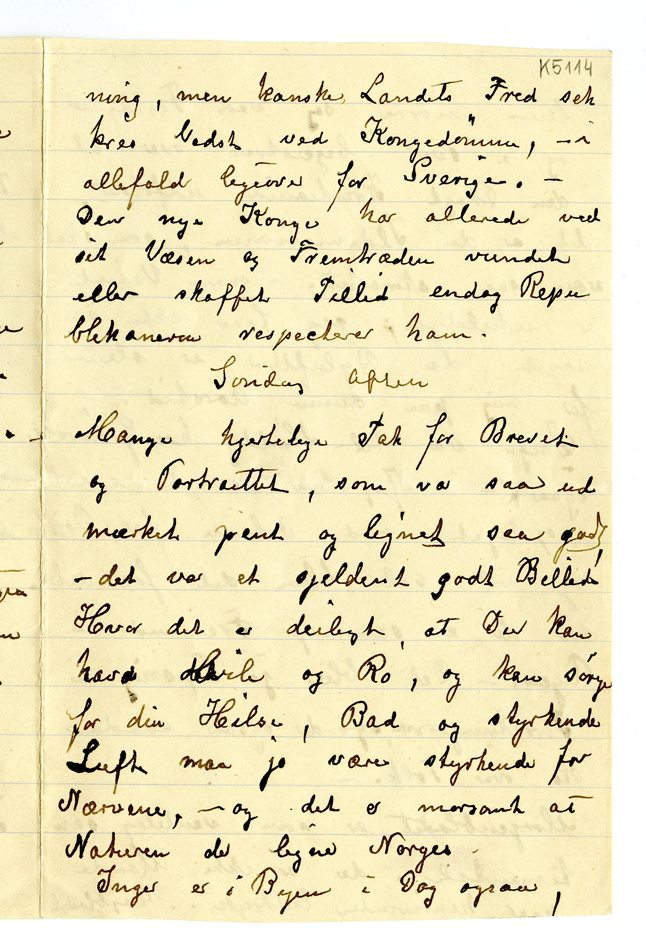 K5114
ning, men kanske Landets Fred sek
kres bedst ved Kongedømme, – i
allefald ligeovr for Sverige. –
Den nye Konge har allerede ved
sit Væsen og Fremtræden vundet
eller skaffet Tillid endog Repu
blikanerne respecterer ham.
Søndag Aften
Mange hjertelige Tak for Brevet
og Portrættet, som var saa ud
mærket pent og lignet saa godt,
– det var et sjeldent godt Billede
Hvor det er deiligt, at Du kan
have Hvile og Ro, og kan sørge
for din Helse, Bad og styrkende
Luft maa jo være styrkende for
Nærvene, – og det er morsomt at
Naturen der ligner Norges.
Inger er i Byen i Dag ogsaa,